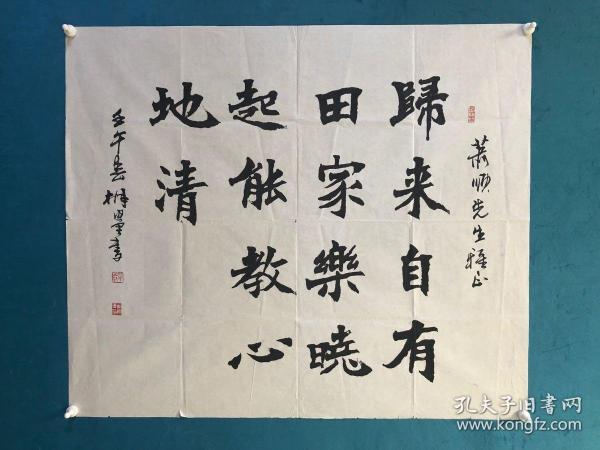 萧顺先生雅正
歸来自有
田家樂曉
起能教心
地清
壬午春 墨书
孔夫子旧書网
www.kongfz.com